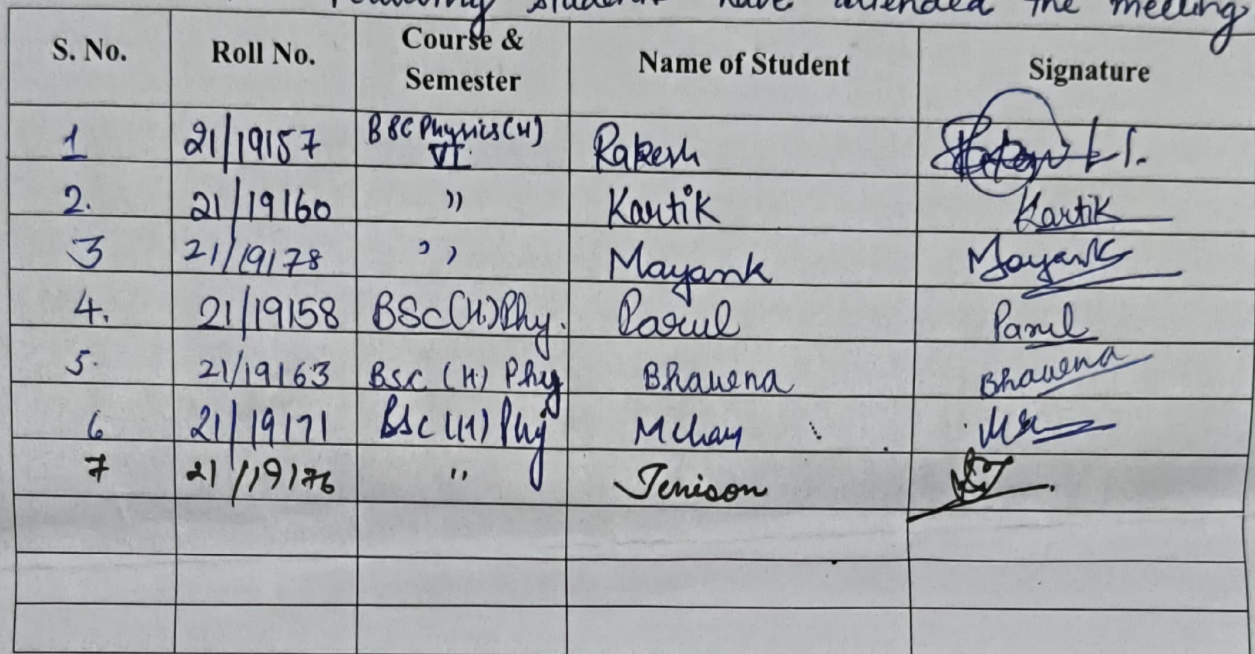 Following students have attended the meeting
S. No. Roll No. Course & Semester Name of Student Signature
1 21/19157 BSC Physics (H) VI Rakesh
2. 21/19160 " Kartik Kartik
3 21/19178 " Mayank Mayank
4. 21/19158 BSc (H) Phy. Parul Parul
5. 21/19163 BSc (H) Phy Bhavena Bhavena
6 21/19171 BSc (H) Phy
7 21/19176 " Jenison